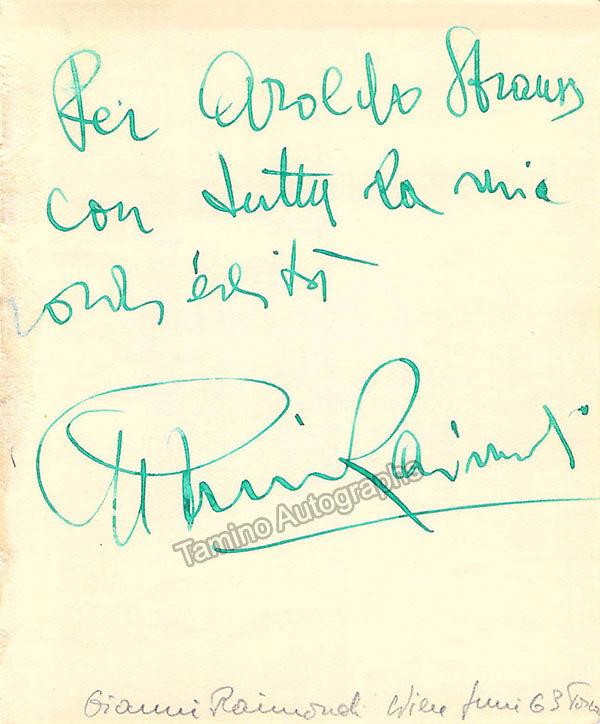 Per Aroldo Strauss
con tutta la mia
cordialità
Gianni Raimondi
Tamino Autographs
Gianni Raimondi Wien Juni 63